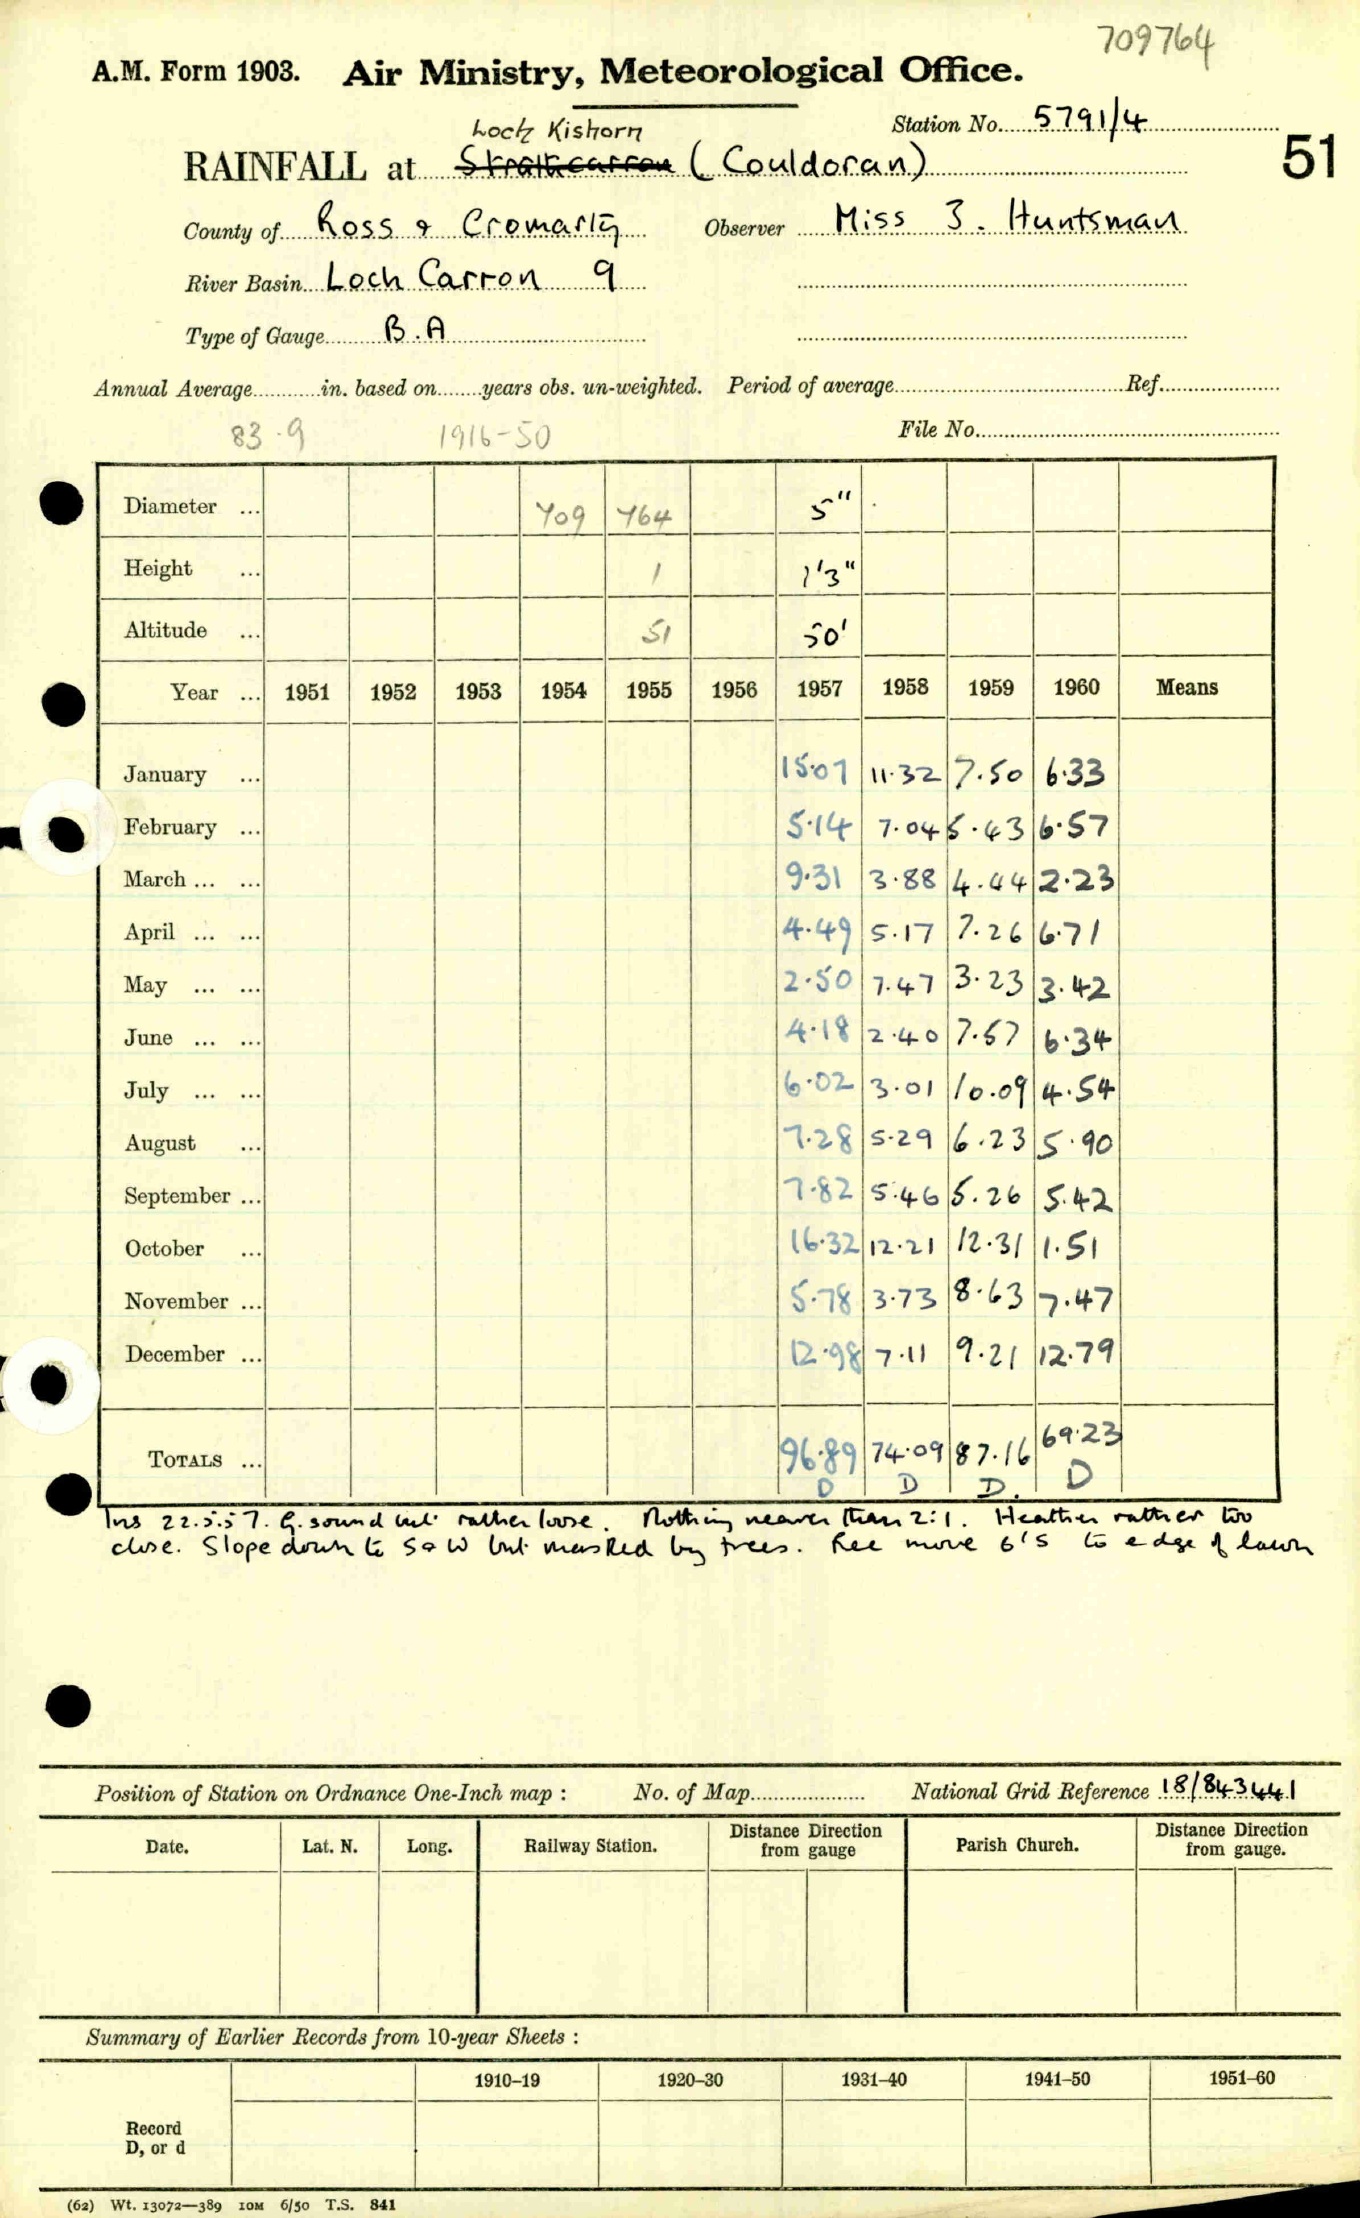 709764
A.M. Form 1903. Air Ministry, Meteorological Office.
Station No. 5791/4
Loch Kishorn
RAINFALL at Strathcarron (Couldoran)
51
County of Ross & Cromarty Observer Miss J. Huntsman
River Basin Loch Carron 9
Type of Gauge B.A
Annual Average in. based on years obs. un-weighted. Period of average Ref.
83.9 1916-50 File No.
Diameter ... 709 764 5"
Height ... 1 1'3"
Altitude ... 51 50'
Year ... 1951 1952 1953 1954 1955 1956 1957 1958 1959 1960 Means
January ... 15.07 11.32 7.50 6.33
February ... 5.14 7.04 5.43 6.57
March ... ... 9.31 3.88 4.44 2.23
April ... ... 4.49 5.17 7.26 6.71
May ... ... 2.50 7.47 3.23 3.42
June ... ... 4.18 2.40 7.57 6.34
July ... ... 6.02 3.01 10.09 4.54
August ... 7.28 5.29 6.23 5.90
September ... 7.82 5.46 5.26 5.42
October ... 16.32 12.21 12.31 1.51
November ... 5.78 3.73 8.63 7.47
December ... 12.98 7.11 9.21 12.79
TOTALS ... 96.89 74.09 87.16 69.23
D D D. D
Ins 22.5.57. G. sound but rather loose. Nothing nearer than 2:1. Heather rather too
close. Slope down to S & W but masked by trees. Rec move 6'S to edge of lawn
Position of Station on Ordnance One-Inch map : No. of Map National Grid Reference 18/843441
Date. Lat. N. Long. Railway Station. Distance Direction from gauge Parish Church. Distance Direction from gauge.
Summary of Earlier Records from 10-year Sheets :
1910–19 1920–30 1931–40 1941–50 1951–60
Record
D, or d
(62) Wt. 13072—389 10M 6/50 T.S. 841